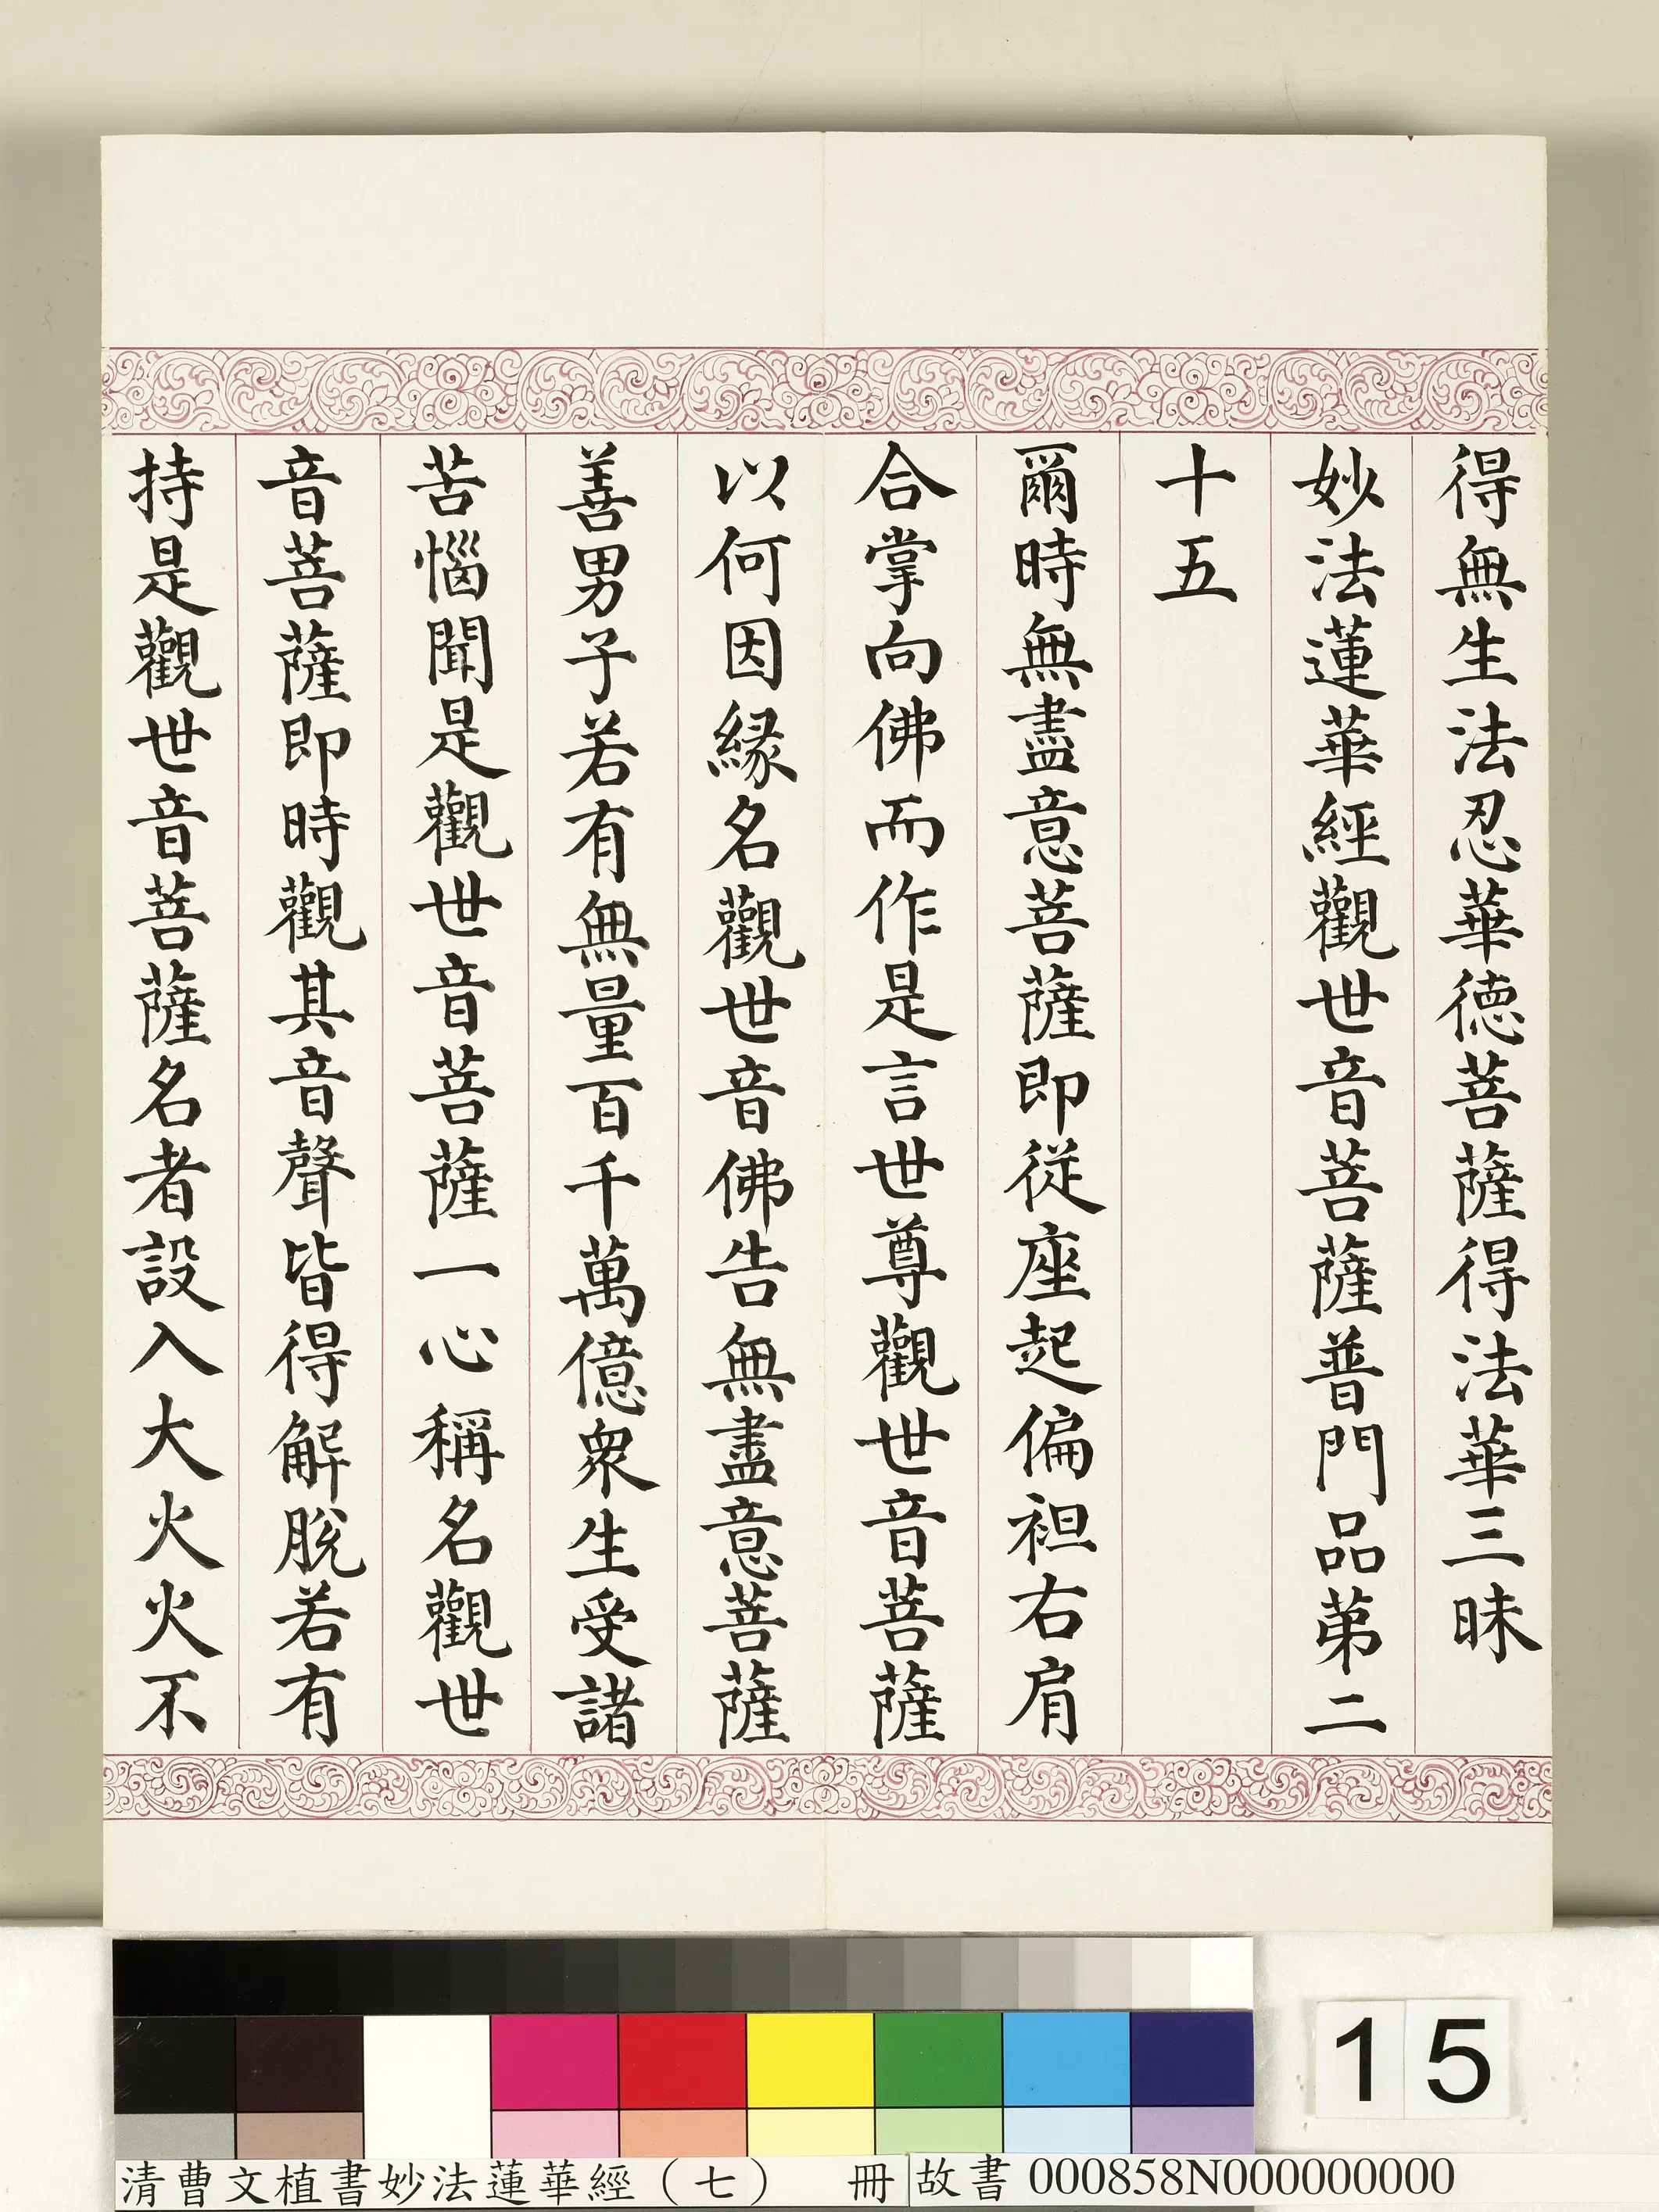 得無生法忍華德菩薩得法華三昧
妙法蓮華經觀世音菩薩普門品第二
十五
爾時無盡意菩薩即從座起偏袒右肩
合掌向佛而作是言世尊觀世音菩薩
以何因緣名觀世音佛告無盡意菩薩
善男子若有無量百千萬億衆生受諸
苦惱聞是觀世音菩薩一心稱名觀世
音菩薩即時觀其音聲皆得解脫若有
持是觀世音菩薩名者設入大火火不
15
清曹文植書妙法蓮華經(七) 冊
故書 000858N000000000